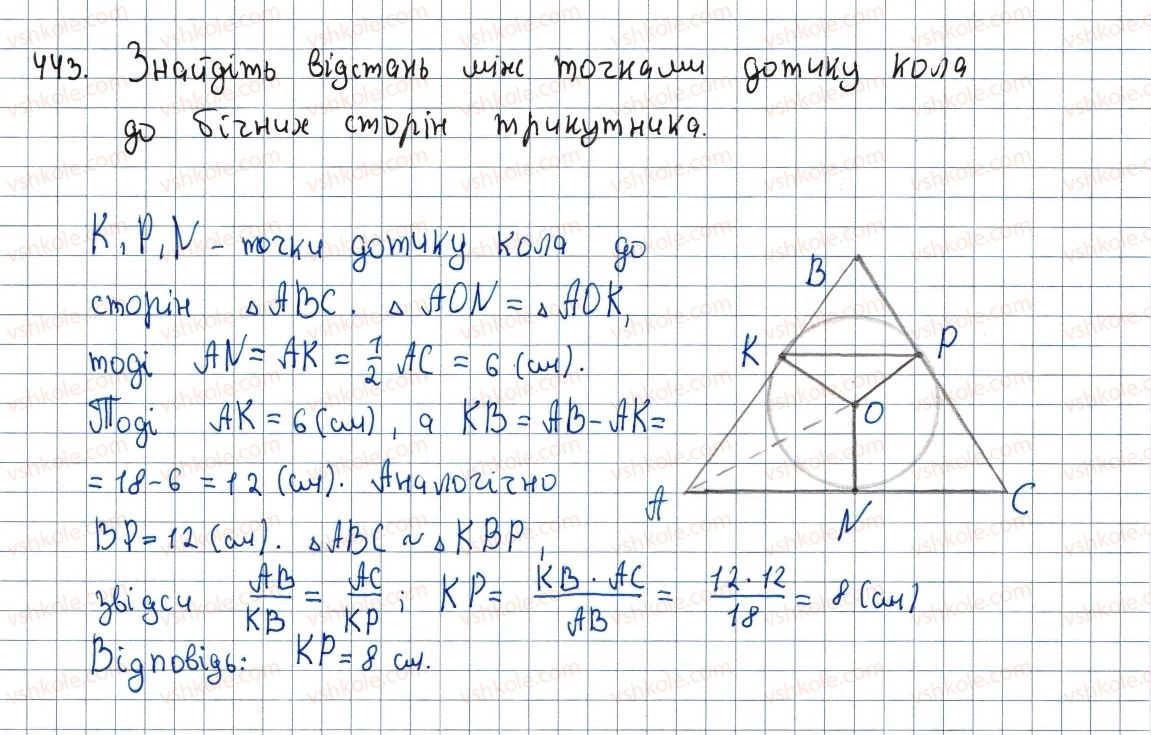 443. Знайдіть відстань між точками дотику кола
до бічних сторін трикутника.
K, P, N - точки дотику кола до
сторін △ABC. △AON = △AOK,
тоді AN = AK = 1/2 AC = 6 (см).
Тоді AK = 6 (см), а KB = AB - AK =
= 18 - 6 = 12 (см). Аналогічно
BP = 12 (см). △ABC ~ △KBP,
звідси AB/KB = AC/KP; KP = KB · AC/AB = 12 · 12/18 = 8 (см)
Відповідь: KP = 8 см.
B
K
P
O
A
N
C
vshkole.com